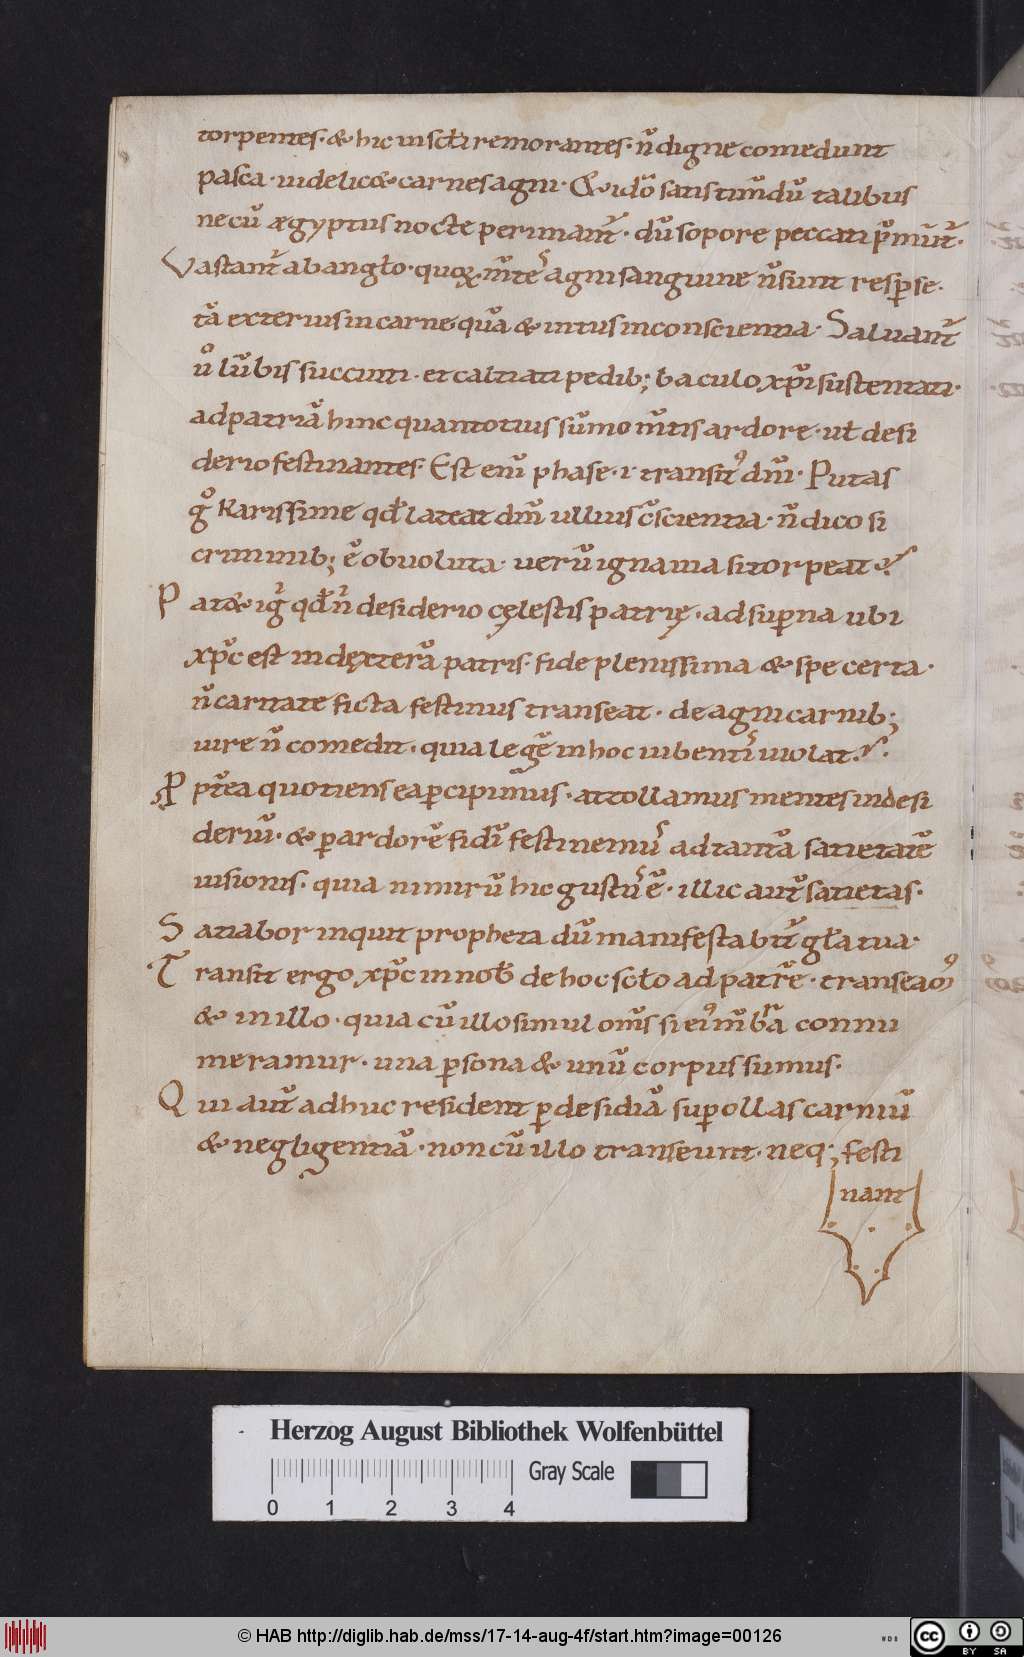 torpentes· & hic in scłi remorantes· ñ digne comedunt
pasca· uidelic& carnes agni· & idõ satis timdũ talibus
ne cũ ægyptiis nocte perimant̃· dũ sopore peccati p̃mũt̃·
Vastant̃ ab angło· quoꝝ m̃tes agni sanguine ñ sunt resꝑse·
tã exterius in carne quã & intus in conscientia· Saluant̃
ũ lũbis succinti· et caltiati pedib; baculo xp̃i sustentati·
ad patriã hinc quanto tius sũmo m̃tis ardore· uł desi
derio festinantes· Est enĩ phase· i· transit᾿ dñi· Putas
g̊ karissime qđ lateat dñm ullius c̃scientia· ñ dico si
criminib; ẽ obuoluta· uerũ ignauia si torpeat·
Pat& ig̃ qđ ñ desiderio cęlestis patrię· ad suꝑna ubi
xp̃c est in dęxterã patris· fide plenissima & spe certa·
ñ caritate ficta festinus transeat· de agni carnib;
uire ñ comedit· quia legẽ in hoc iubentis uiolat·
Ppt̃ea quotiens ea ꝑcipim̃us· attollamus mentes in desi
deriũ· & ꝑ ardorẽ fidĩ festinemus ad tantã satietatẽ
uisionis· quia nimirũ hic gustus ẽ· illic aut̃ satietas·
Satiabor inquit propheta dũ manifestabit̃ gła tua·
Transit ergo xp̃c in nob̃ de hoc scło ad patrẽ· transeam᾿
& in illo· quia cũ illo simul om̃s si ei᾿ m̃bra connu
meramur· una ꝑsona & unũ corpus sumus·
Qui aut̃ adhuc resident ꝑ desidiã suꝑ ollas carniũ
& negligentiã· non cũ illo transeunt· neq; festi
nant
Herzog August Bibliothek Wolfenbüttel
Gray Scale
0 1 2 3 4
© HAB http://diglib.hab.de/mss/17-14-aug-4f/start.htm?image=00126
WDB
cc BY SA